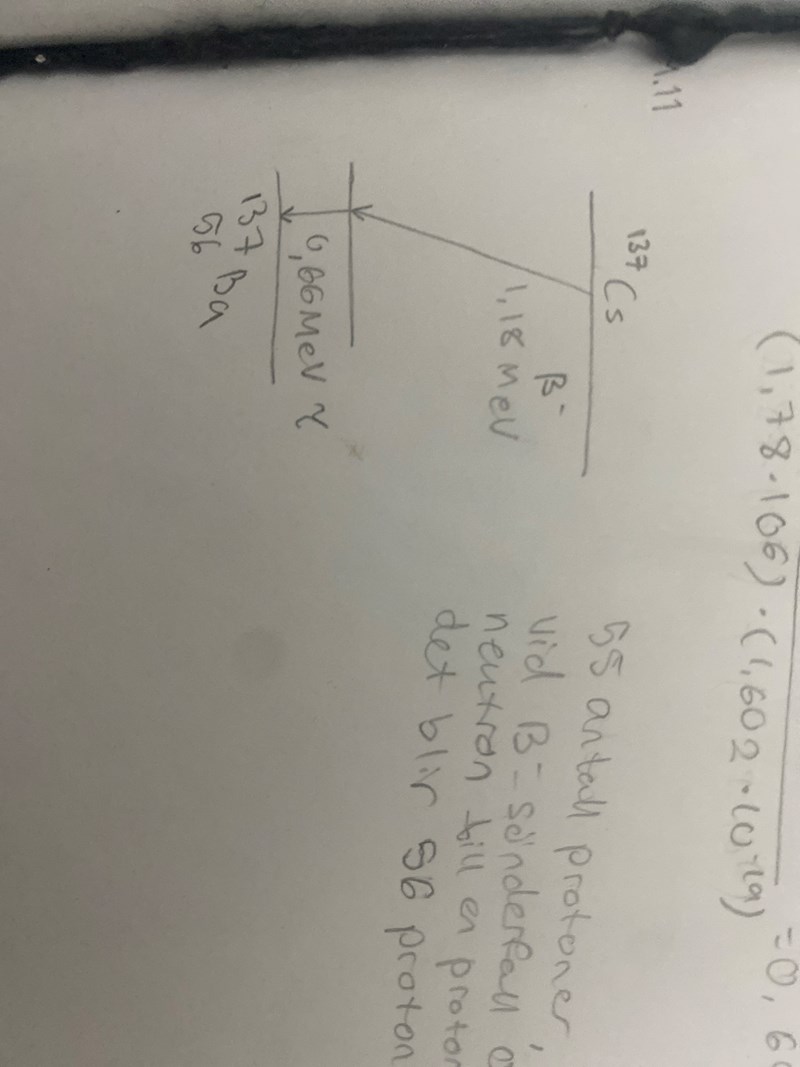 (1,78·106)·(1,602·10-19) =0,6
1.11
137 Cs
β-
1,18 MeV
0,66 MeV γ
137
56 Ba
55 antall protoner,
vid β- sönderfall
neutron till en proton
det blir 56 proton